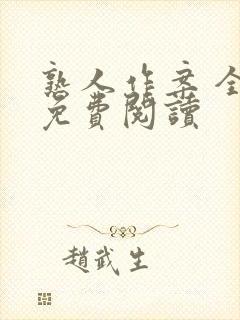 熟人作案全
免費閱讀
趙武生